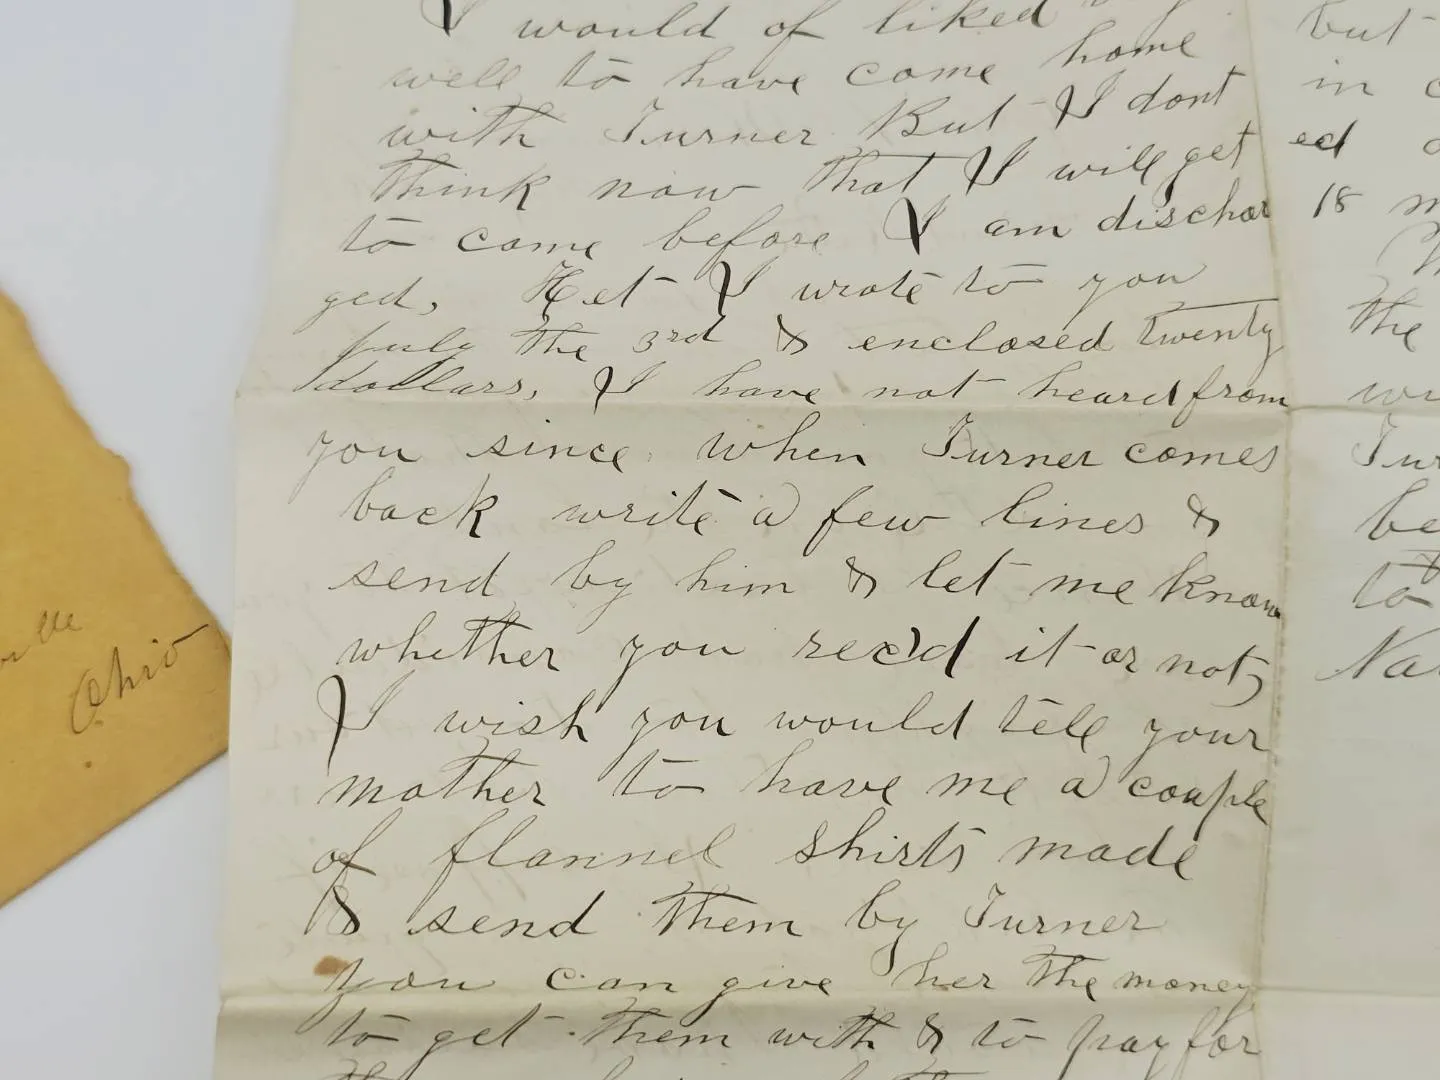 I would of liked
well to have come home
with Turner But I dont
think now that I will get
to come before I am dischar
ged, Het I wrote to you
july the 3rd & enclosed twenty
dollars, I have not heard from
you since. when Turner comes
back write a few lines &
send by him & let me know
whether you rec'd it or not,
I wish you would tell your
mother to have me a couple
of flannel shirts made
& send them by Turner
you can give her the money
to get them with & to pay for
but
in
ed
18
the
be
to
Ohio